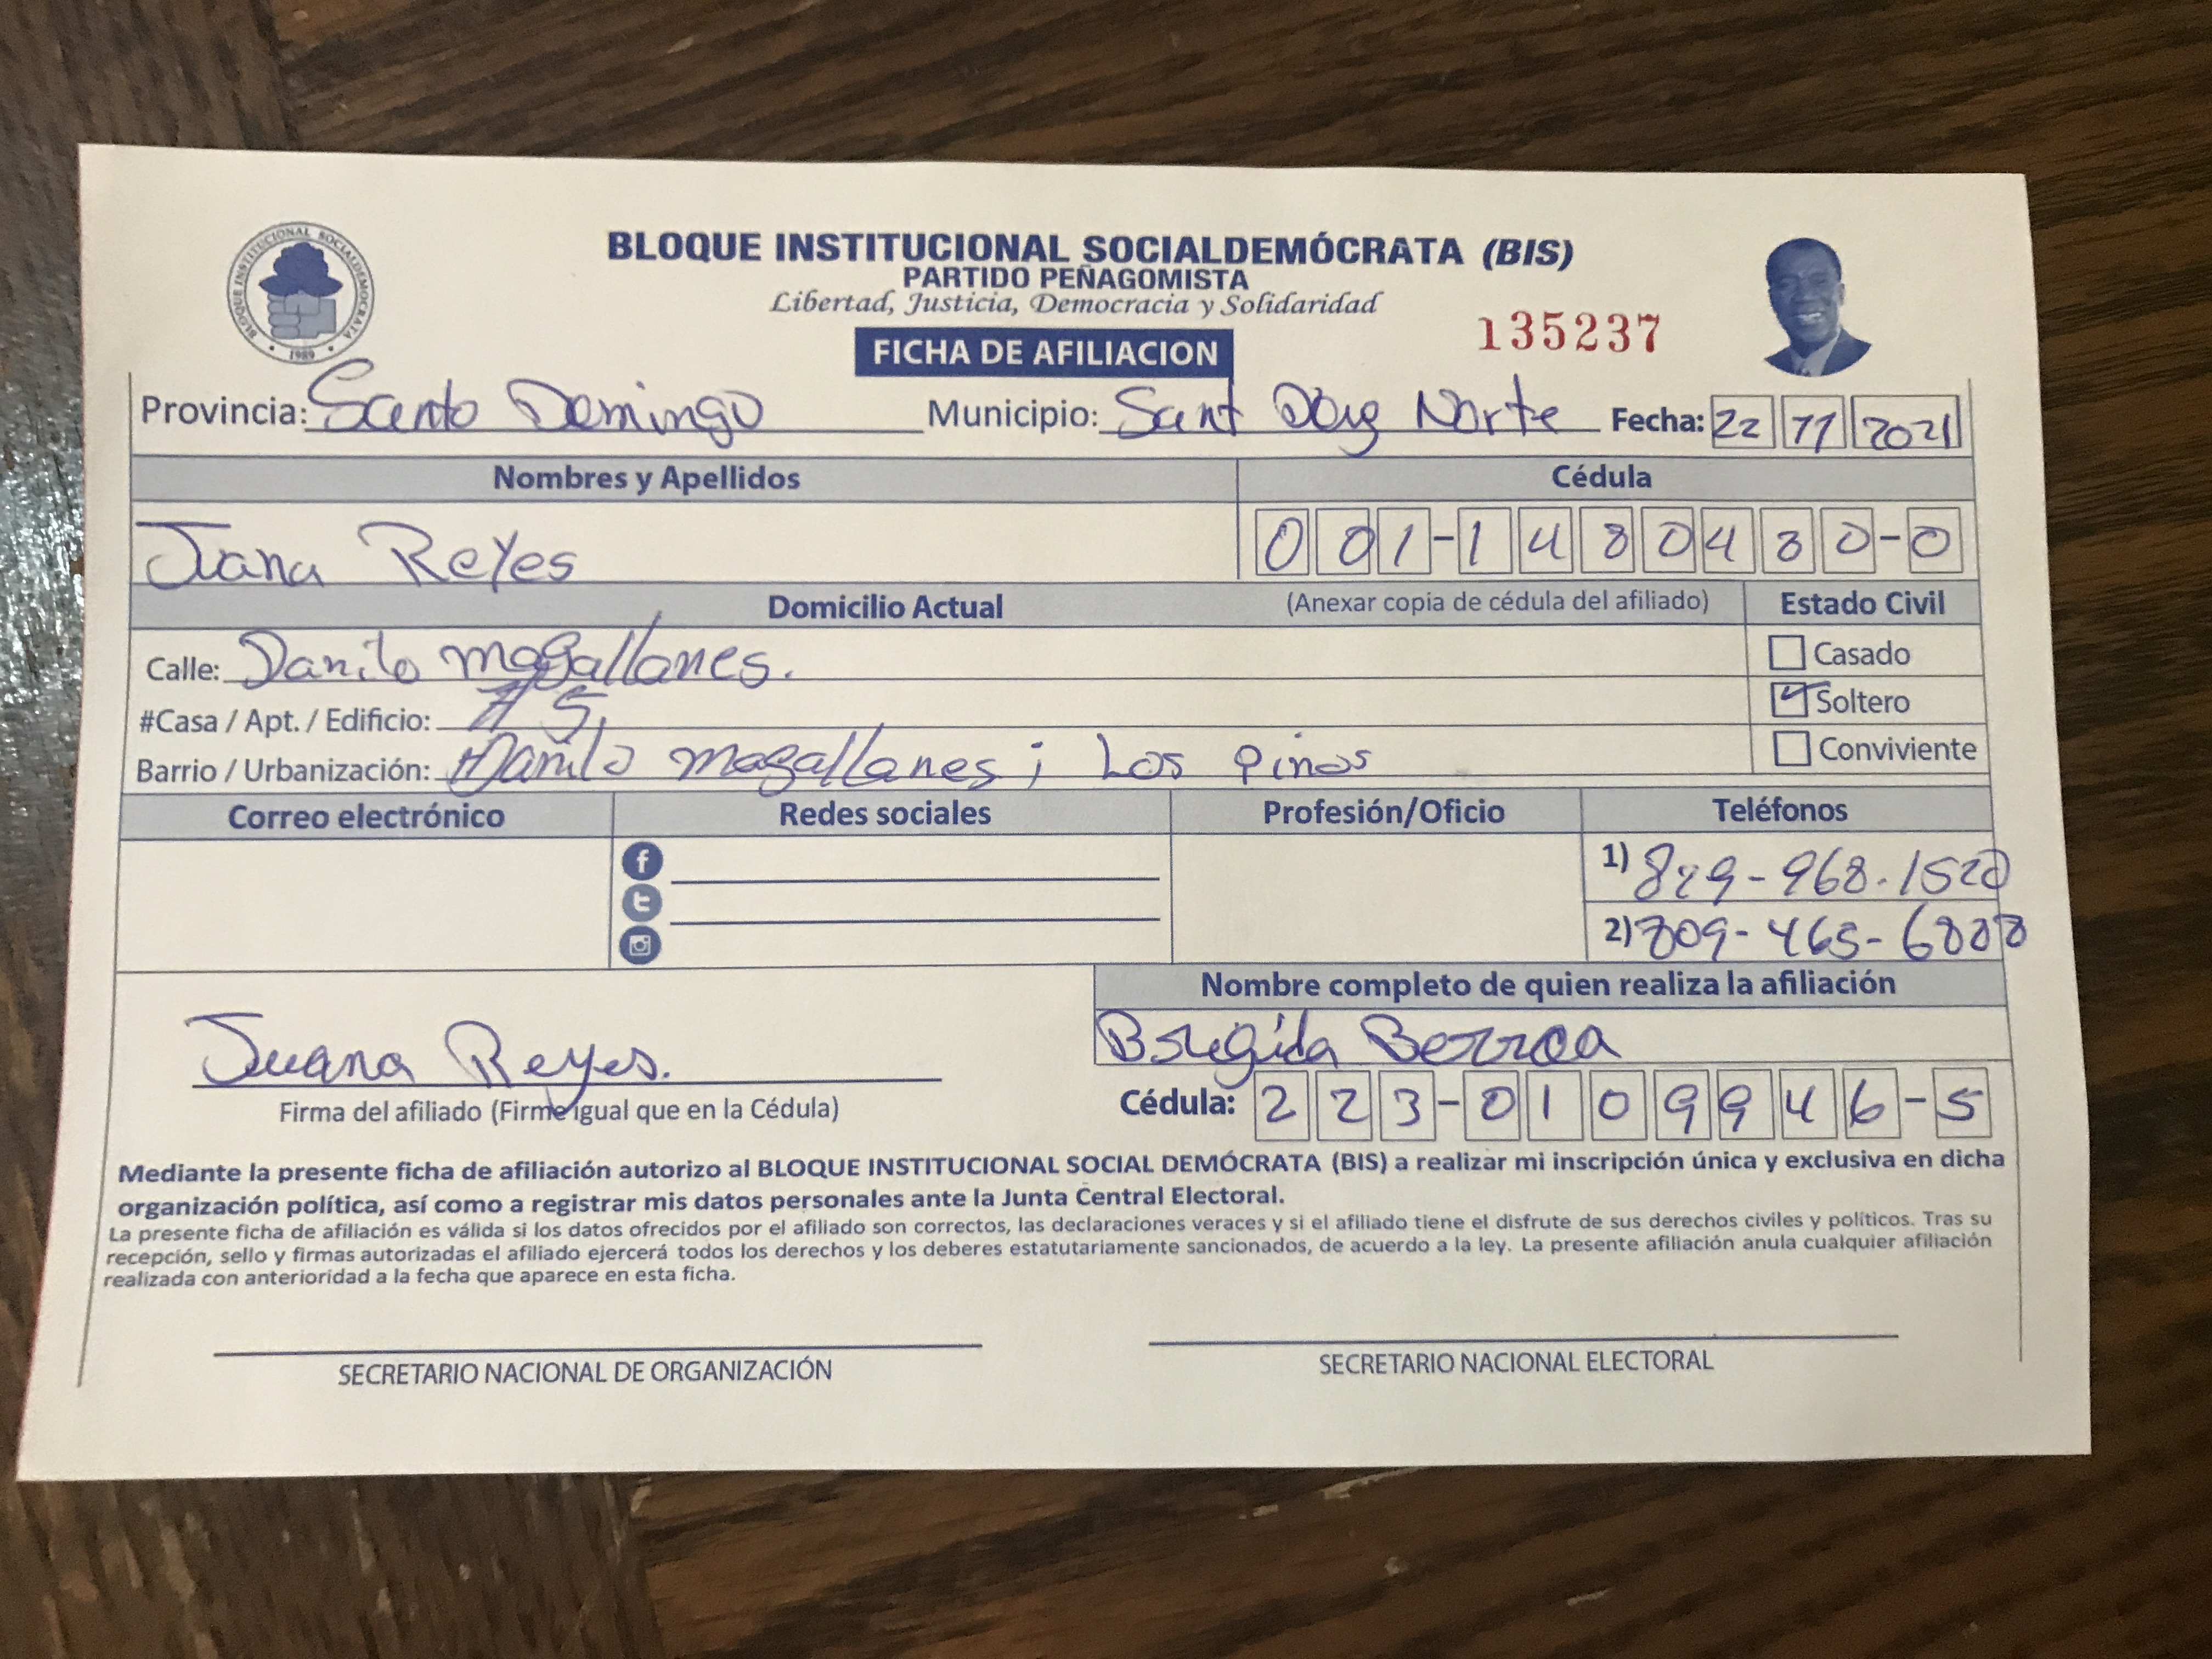 BLOQUE INSTITUCIONAL SOCIALDEMOCRATA
1989
BLOQUE INSTITUCIONAL SOCIALDEMÓCRATA (BIS)
PARTIDO PEÑAGOMISTA
Libertad, Justicia, Democracia y Solidaridad
135237
FICHA DE AFILIACION
Provincia: Santo Domingo Municipio: Sant Norte Fecha: 22 11 2021
Nombres y Apellidos Cédula
Juana Reyes 001-1480430-0
Domicilio Actual (Anexar copia de cédula del afiliado) Estado Civil
Calle: Danilo magallanes. Casado
#Casa / Apt. / Edificio: # 5. Soltero
Barrio / Urbanización: Danilo magallanes; Los pinos Conviviente
Correo electrónico Redes sociales Profesión/Oficio Teléfonos
1) 829-968-1520
2) 809-465-
Nombre completo de quien realiza la afiliación
Juana Reyes. Brigida Berroa
Firma del afiliado (Firme igual que en la Cédula) Cédula: 223-0109946-5
Mediante la presente ficha de afiliación autorizo al BLOQUE INSTITUCIONAL SOCIAL DEMÓCRATA (BIS) a realizar mi inscripción única y exclusiva en dicha
organización política, así como a registrar mis datos personales ante la Junta Central Electoral.
La presente ficha de afiliación es válida si los datos ofrecidos por el afiliado son correctos, las declaraciones veraces y si el afiliado tiene el disfrute de sus derechos civiles y políticos. Tras su
recepción, sello y firmas autorizadas el afiliado ejercerá todos los derechos y los deberes estatutariamente sancionados, de acuerdo a la ley. La presente afiliación anula cualquier afiliación
realizada con anterioridad a la fecha que aparece en esta ficha.
SECRETARIO NACIONAL DE ORGANIZACIÓN SECRETARIO NACIONAL ELECTORAL